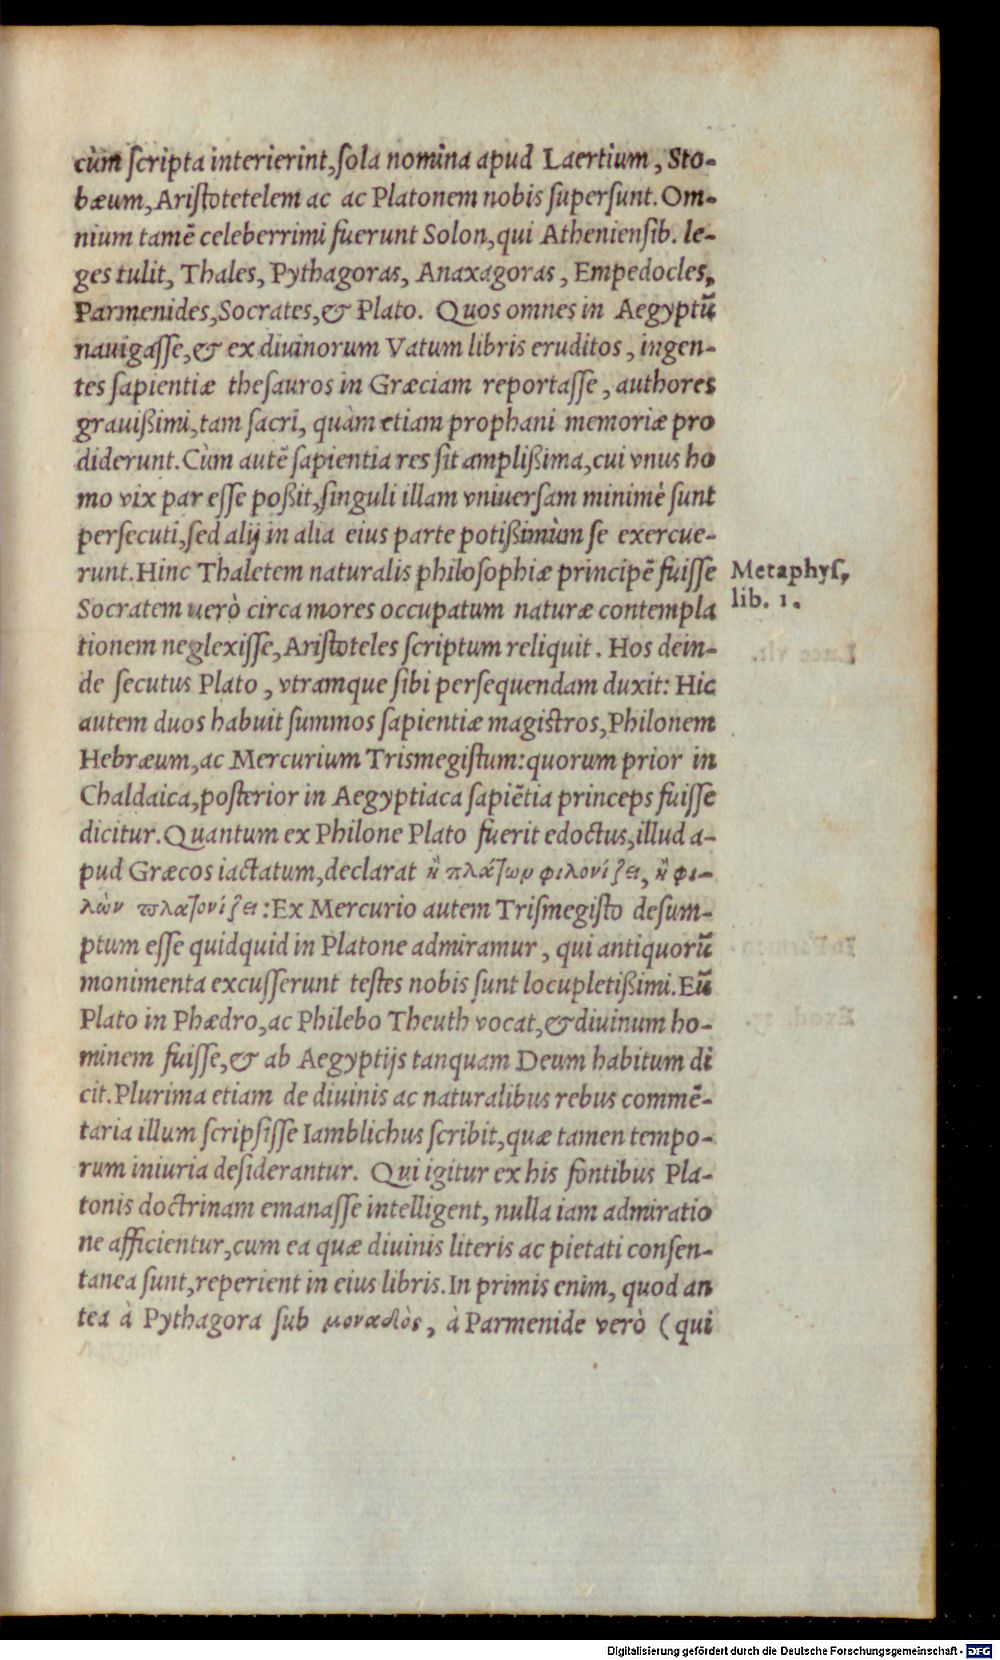 cùm ſcripta interierint, ſola nomina apud Laertium, Sto-
bæum, Ariſtotetelem ac ac Platonem nobis ſuperſunt. Om-
nium tamẽ celeberrimi fuerunt Solon, qui Athenienſib. le-
ges tulit, Thales, Pythagoras, Anaxagoras, Empedocles,
Parmenides, Socrates, & Plato. Quos omnes in Aegyptũ
nauigaſſe, & ex diuinorum Vatum libris eruditos, ingen-
tes ſapientiæ theſauros in Græciam reportaſſe, authores
grauißimi, tam ſacri, quàm etiam prophani memoriæ pro
diderunt. Cùm autẽ ſapientia res ſit amplißima, cui vnus ho
mo vix par eſſe poßit, ſinguli illam vniuerſam minimè ſunt
perſecuti, ſed alij in alia eius parte potißimùm ſe exercue-
runt. Hinc Thaletem naturalis philoſophiæ principẽ fuiſſe
Metaphyſ,
lib. 1.
Socratem uerò circa mores occupatum naturæ contempla
tionem neglexiſſe, Ariſtoteles ſcriptum reliquit. Hos dein-
de ſecutus Plato, vtramque ſibi perſequendam duxit: Hic
autem duos habuit ſummos ſapientiæ magiſtros, Philonem
Hebræum, ac Mercurium Trismegiſtum: quorum prior in
Chaldaica, poſterior in Aegyptiaca ſapiẽtia princeps fuiſſe
dicitur. Quantum ex Philone Plato fuerit edoctus, illud a-
pud Græcos iactatum, declarat ἢ πλάτων φιλονίζει, ἢ φι-
λὼν πλατονίζει: Ex Mercurio autem Triſmegiſto deſum-
ptum eſſe quidquid in Platone admiramur, qui antiquorũ
monimenta excuſſerunt teſtes nobis ſunt locupletißimi. Eũ
Plato in Phædro, ac Philebo Theuth vocat, & diuinum ho-
minem fuiſſe, & ab Aegyptijs tanquam Deum habitum di
cit. Plurima etiam de diuinis ac naturalibus rebus commẽ-
taria illum ſcripſiſſe Iamblichus ſcribit, quæ tamen tempo-
rum iniuria deſiderantur. Qui igitur ex his fontibus Pla-
tonis doctrinam emanaſſe intelligent, nulla iam admiratio
ne afficientur, cum ea quæ diuinis literis ac pietati conſen-
tanea ſunt, reperient in eius libris. In primis enim, quod an
tea à Pythagora ſub μοναδὸς, à Parmenide verò (qui
Digitalisierung gefördert durch die Deutsche Forschungsgemeinschaft - DFG